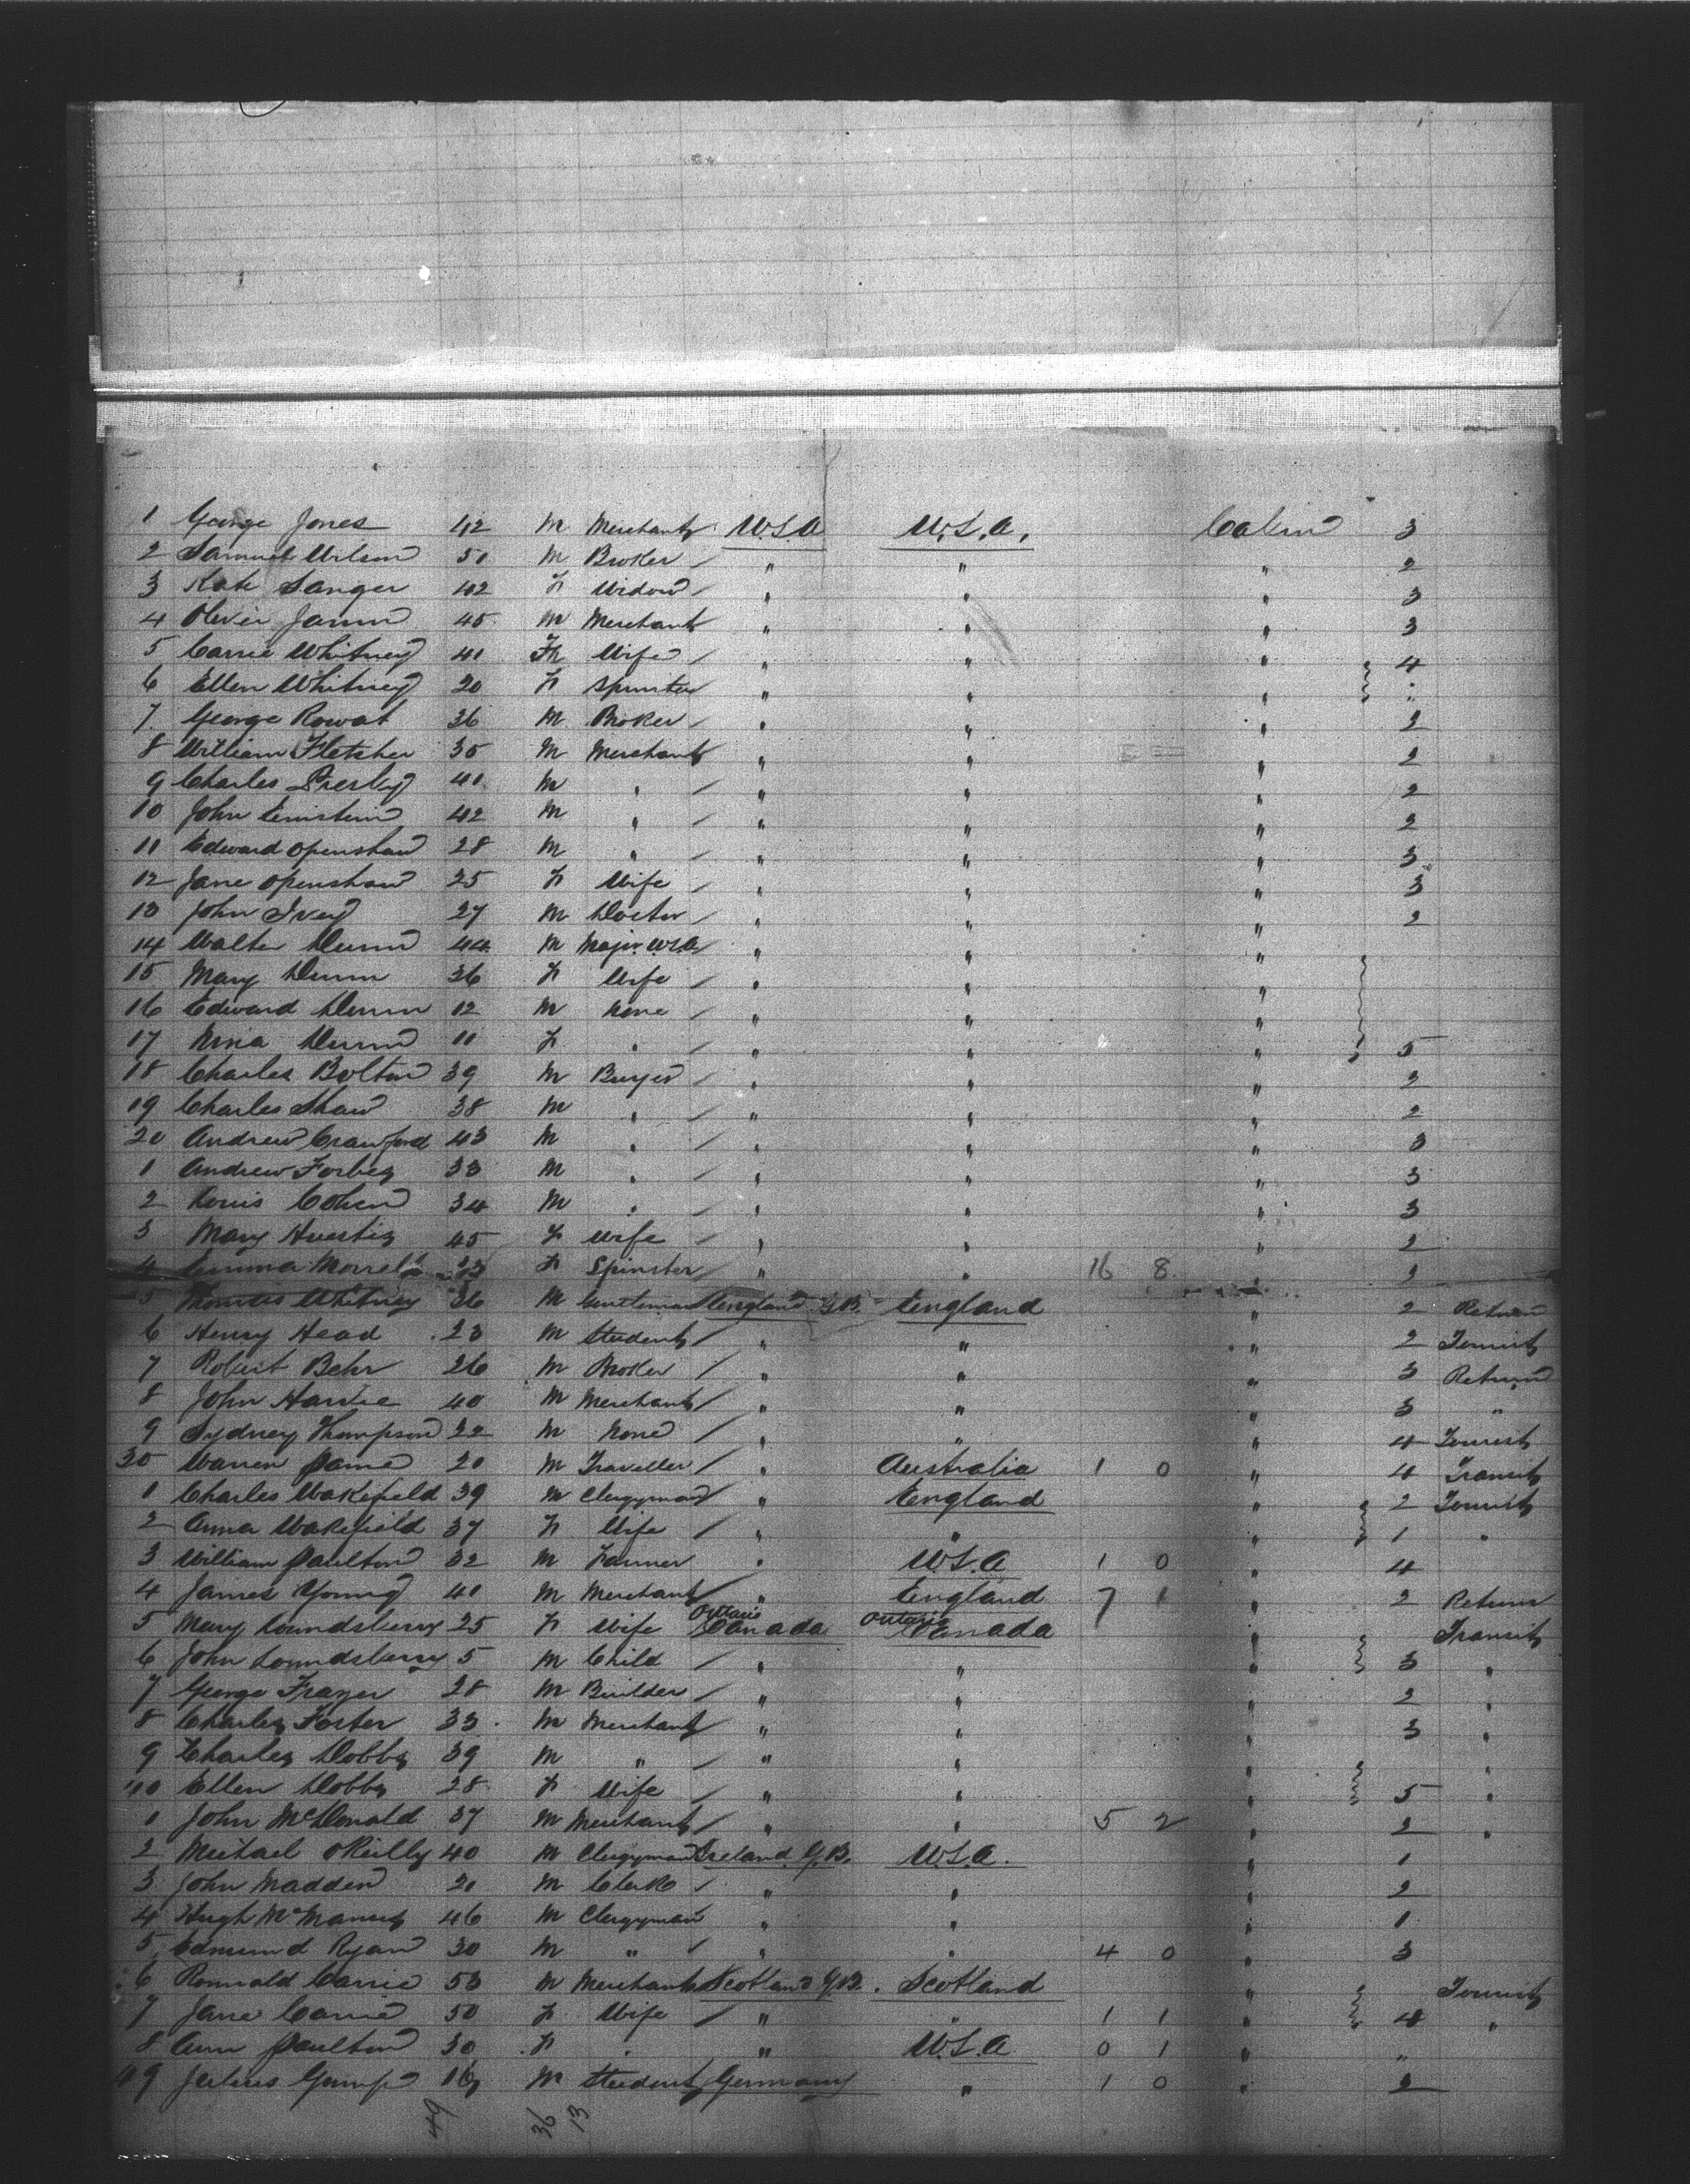 1 George Jones 42 M Merchant U.S.A U.S.A. Cabin 3
2 Samuel Wilson 50 M Broker " " " 2
3 Kate Sanger 42 F Widow " " " 3
4 Oliver 45 M Merchant " " " 3
5 Carrie Whitney 41 F Wife " " " 4
6 Ellen Whitney 20 F Spinster " " " "
7 George Rowat 36 M Broker " " " 2
8 William Fletcher 35 M Merchant " " " 2
9 Charles Presby 41 M " " " " 2
10 John Einstein 42 M " " " " 2
11 Edward Openshaw 28 M " " " " 3
12 Jane Openshaw 25 F Wife " " " 3
13 John Ivey 27 M Doctor " " " 2
14 Walter Dunn 44 M Major U.S.A " " "
15 Mary Dunn 36 F Wife " " "
16 Edward Dunn 12 M None " " "
17 Nina Dunn 11 F " " " " 5
18 Charles Bolton 39 M Buyer " " " 2
19 Charles Shaw 38 M " " " " 2
20 Andrew Crawford 43 M " " " " 3
1 Andrew Forbes 33 M " " " " 3
2 Louis Cohen 34 M " " " " 3
3 Mary Huestis 45 F Wife " " " 2
4 Emma Morrell 23 F Spinster " " 16 8 " 2
5 Thomas Whitney 36 M Gentleman England G.B. England " 2 Return
6 Henry Head 23 M Student " " " 2 Tourist
7 Robert Behr 26 M Broker " " " 3 Return
8 John Hardie 40 M Merchant " " " 3 "
9 Sydney Thompson 22 M None " " " 4 Tourist
30 Warren Paine 20 M Traveller " Australia 1 0 " 4 Transit
1 Charles Wakefield 39 M Clergyman " England " 2 Tourist
2 Anna Wakefield 37 F Wife " " " 1 "
3 William Paulton 32 M Farmer " U.S.A 1 0 " 4
4 James Young 41 M Merchant " England 7 1 " 2 Return
5 Mary Loundsberry 25 F Wife Ontario Canada Ontario Canada " Transit
6 John Loundsberry 5 M Child " " " 3 "
7 George Frazer 28 M Builder " " " 2 "
8 Charles Foster 33 M Merchant " " " 3 "
9 Charles Dobbs 39 M " " " " "
40 Ellen Dobbs 28 F Wife " " " 5 "
1 John McDonald 37 M Merchant " " 5 2 " 2 "
2 Michael O'Reilly 40 M Clergyman Ireland G.B. U.S.A. " 1
3 John Madden 21 M Clerk " " " 2
4 Hugh McManus 46 M Clergyman " " " 1
5 Edmund Ryan 30 M " " " 4 0 " 3
6 Ronnald Carrie 53 M Merchant Scotland G.B. Scotland " Tourist
7 Jane Carrie 50 F Wife " " 1 1 " 4 "
8 Ann Paulton 30 F " " U.S.A 0 1 " "
49 Julius Gump 16 M Student Germany " 1 0 " 2
49 36 13